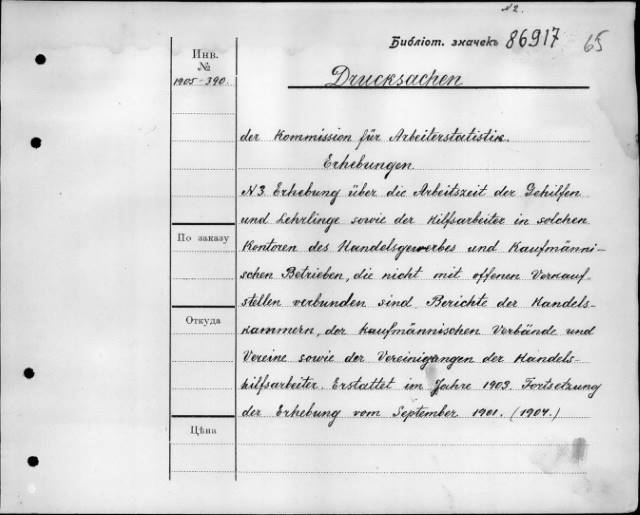 N2.
Библіот. значекъ 86917 65
Инв.
№
1905-390.
Drucksachen
der Kommission für Arbeiterstatistik.
Erhebungen.
N3 Erhebung über die Arbeitszeit der Gehilfen
und Lehrlinge sowie der Hilfsarbeiter in solchen
Kontoren des Handelsgewerbes und Kaufmänni-
schen Betrieben, die nicht mit offenen Verkauf-
stellen verbunden sind. Berichte der Handels-
kammern, der kaufmännischen Verbände und
Vereine sowie der Vereinigungen der Handels-
hilfsarbeiter. Erstattet im Jahre 1903. Fortsetzung
der Erhebung vom September 1901. (1904.)
По заказу
Откуда
Цѣна